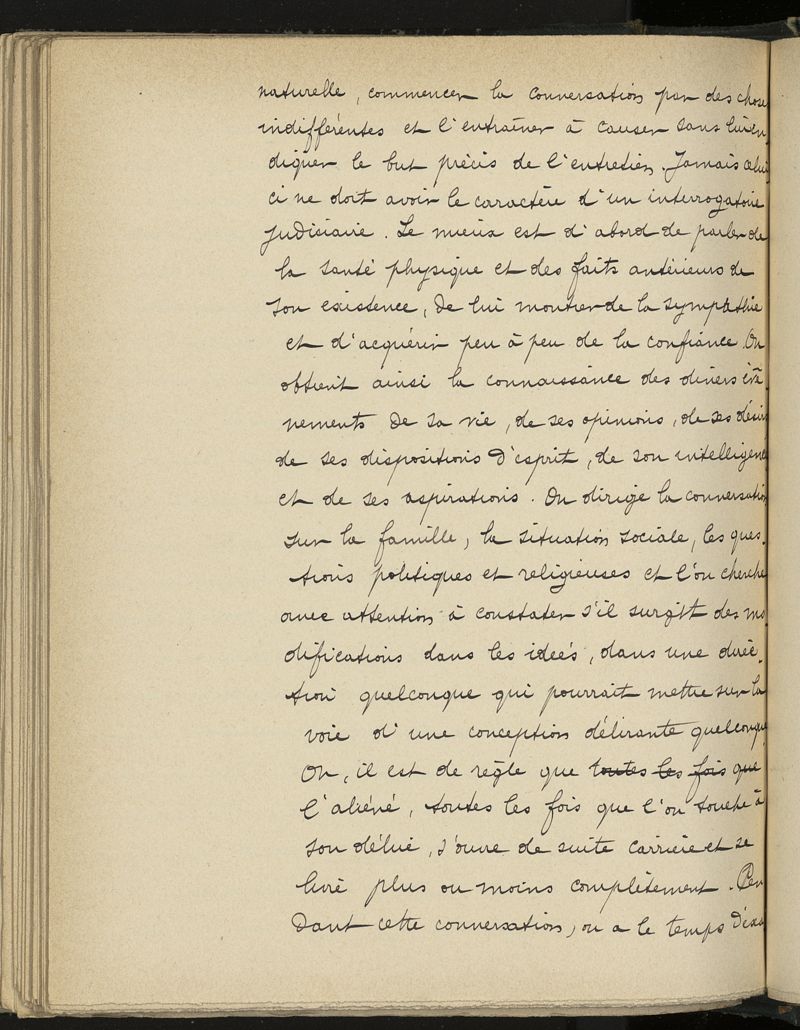 naturelle, commencer la conversation par des chose
indifférentes et l'entraîner à causer sans lui en
diquer le but précis de l'entretien. Jamais celui
ci ne doit avoir le caractère d'un interrogatoire
judiciaire. Le mieux est d'abord de parler de
la santé physique et des faits antérieurs de
son existence, de lui montrer de la sympathie
et d'acquérir peu à peu de la confiance. On
obtient ainsi la connaissance des divers évè
nements de sa vie, de ses opinions, de ses désirs
de ses dispositions d'esprit, de son intelligence
et de ses aspirations. On dirige la conversation
sur la famille, la situation sociale, les ques-
tions politiques et religieuses et l'on cherche
avec attention à constater s'il surgit des mo
difications dans les ideés, dans une direc-
tion quelconque qui pourrait mettre sur la
voie d'une conception délirante quelconque
Or, il est de règle que toutes les fois que
l'aliéné, toutes les fois que l'on touche à
son délire, s'ouvre de suite carrière et se
livre plus ou moins complètement. Pen
dant cette conversation, on a le temps d'exa